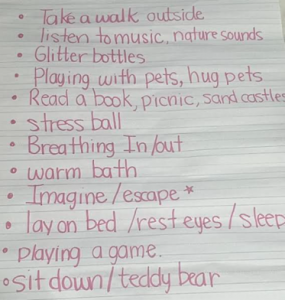 • Take a walk outside
• listen to music, nature sounds
• Glitter bottles
• Playing with pets, hug pets
• Read a book, picnic, sand castles
• stress ball
• Breathing In/out
• warm bath
• Imagine/escape*
• lay on bed/rest eyes/sleep
• playing a game.
• sit down/teddy bear